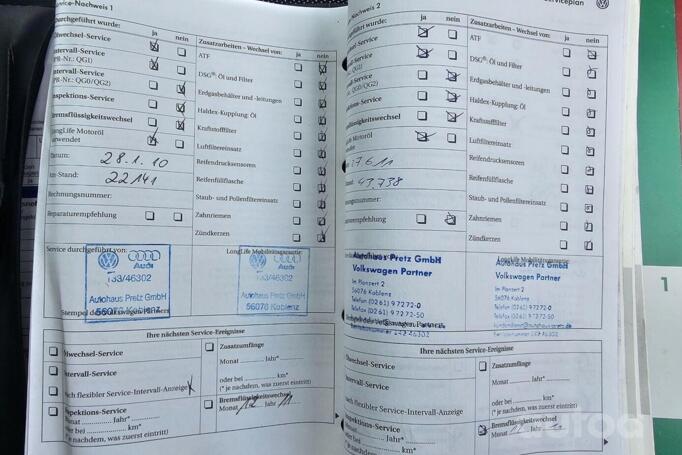 Service-Nachweis 1
Durchgeführt wurde: ja nein
Ölwechsel-Service
Intervall-Service
(PR-Nr.: QG1)
Intervall-Service
(PR-Nr.: QG0/QG2)
Inspektions-Service
Bremsflüssigkeitswechsel
LongLife Motoröl
verwendet
Datum: 28.1.10
km-Stand: 22141
Rechnungsnummer:
Reparaturempfehlung
Zusatzarbeiten - Wechsel von: ja nein
ATF
DSG®: Öl und Filter
Erdgasbehälter und -leitungen
Haldex-Kupplung: Öl
Kraftstofffilter
Luftfiltereinsatz
Reifendrucksensoren
Reifenfüllflasche
Staub- und Pollenfiltereinsatz
Zahnriemen
Zündkerzen
Service durchgeführt von:
Audi
133/46302
Autohaus Pretz GmbH
56076 Koblenz
LongLife Mobilitätsgarantie:
Audi
133/46302
Autohaus Pretz GmbH
56076 Koblenz
Ihre nächsten Service-Ereignisse
Ölwechsel-Service
Intervall-Service
nach flexibler Service-Intervall-Anzeige
Inspektions-Service
Monat Jahr*
oder bei km*
(* je nachdem, was zuerst eintritt)
Zusatzumfänge
Monat Jahr*
oder bei km*
(* je nachdem, was zuerst eintritt)
Bremsflüssigkeitswechsel
Monat 12 Jahr 11
Serviceplan
Service-Nachweis 2
ja nein
Intervall-Service
Bremsflüssigkeitswechsel
LongLife Motoröl
27.6.11
43.738
Zusatzarbeiten - Wechsel von: ja nein
ATF
DSG®: Öl und Filter
Erdgasbehälter und -leitungen
Haldex-Kupplung: Öl
Kraftstofffilter
Luftfiltereinsatz
Reifendrucksensoren
Reifenfüllflasche
Staub- und Pollenfiltereinsatz
Zahnriemen
Zündkerzen
Autohaus Pretz GmbH
Volkswagen Partner
Im Planzert 2
56076 Koblenz
Telefon (02 61) 9 72 72-0
Telefax (02 61) 9 72 72-50
LongLife Mobilitätsgarantie:
Autohaus Pretz GmbH
Volkswagen Partner
Im Planzert 2
56076 Koblenz
Telefon (02 61) 9 72 72-0
Telefax (02 61) 9 72 72-50
Ihre nächsten Service-Ereignisse
Ölwechsel-Service
Intervall-Service
nach flexibler Service-Intervall-Anzeige
Inspektions-Service
Monat Jahr*
oder bei km*
(* je nachdem, was zuerst eintritt)
Zusatzumfänge
Monat Jahr*
oder bei km*
(* je nachdem, was zuerst eintritt)
Bremsflüssigkeitswechsel
1